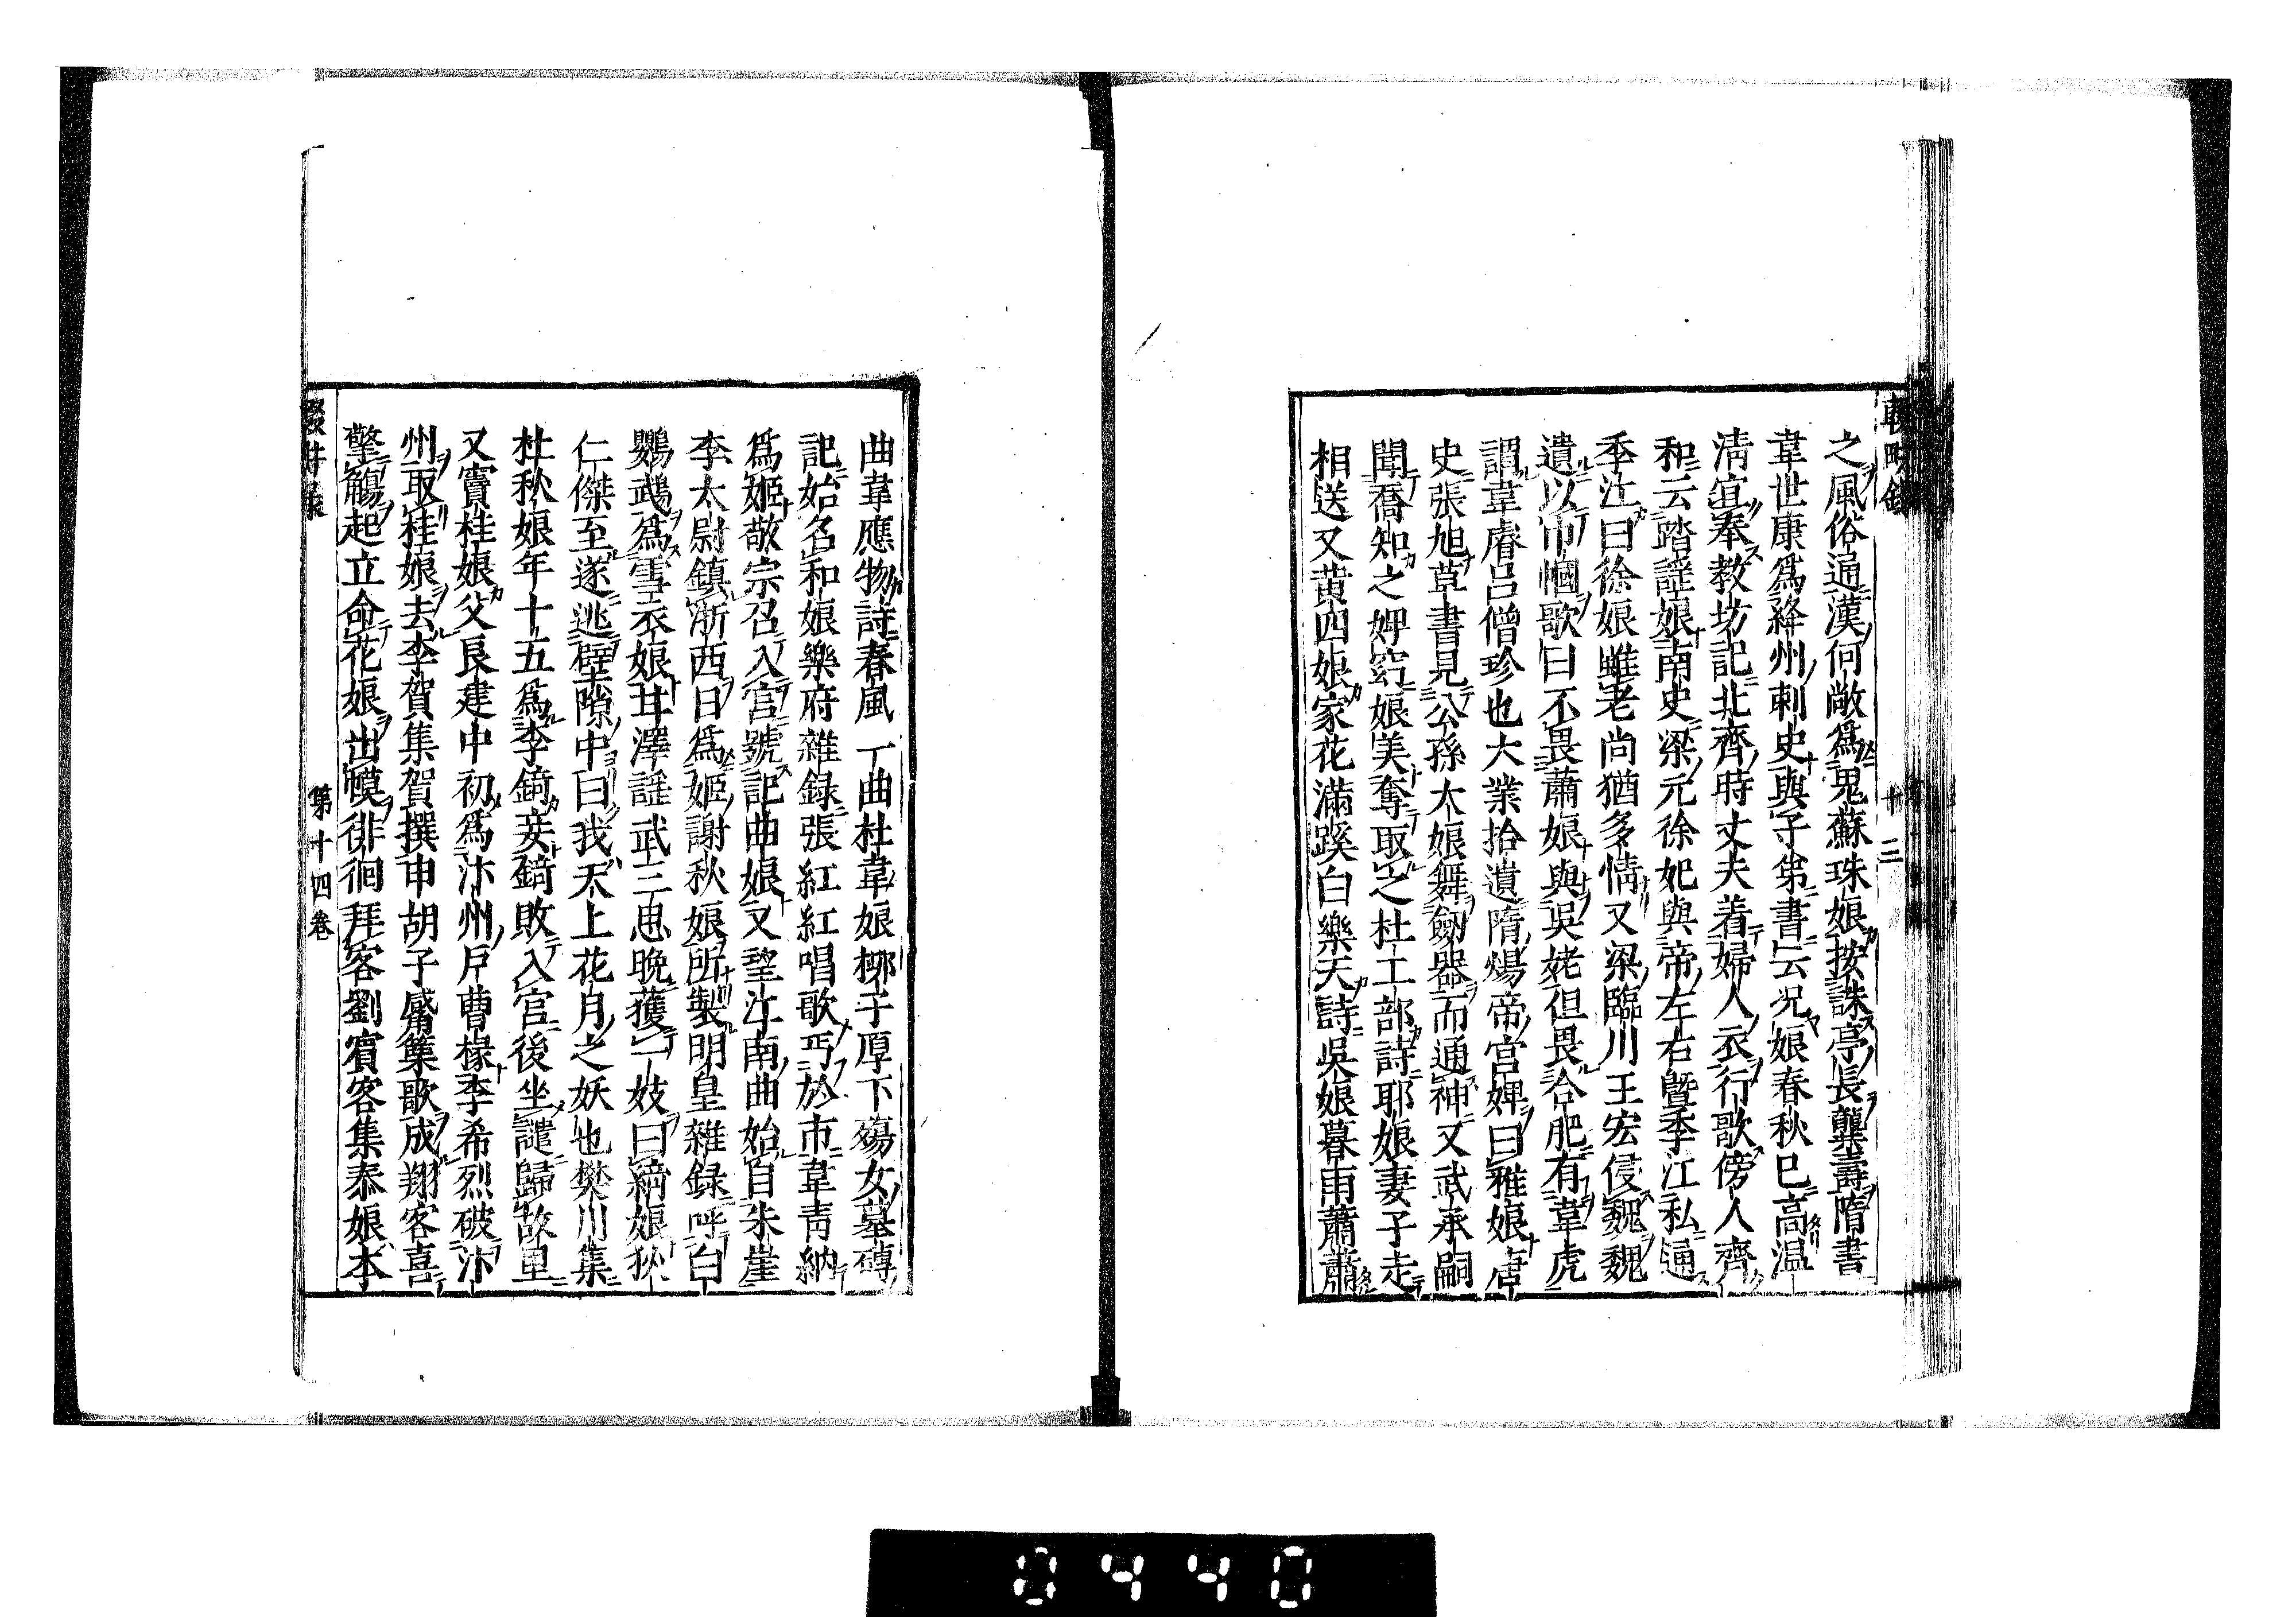 輟畊錄
十三
之風俗通漢何敞爲鬼蘇珠娘按誅亭長龔壽隋書
韋世康爲絳州刺史與子弟書云況娘春秋已高温
淸宜奉教坊記北齊時丈夫着婦人衣行歌傍人齊
和云踏謡娘南史梁元徐妃與帝左右曁季江私通
季江曰徐娘雖老尚猶多情又梁臨川王宏侵魏魏
遺以巾幗歌曰不畏蕭娘與吳姥但畏合肥有韋虎
謂韋睿呂僧珍也大業拾遺隋煬帝宮婢曰雅娘唐
史張旭草書見公孫大娘舞劔器而通神又武承嗣
聞喬知之婢窈娘美奪取之杜工部詩耶娘妻子走
相送又黄四娘家花滿蹊白樂天詩吳娘暮雨蕭蕭
曲韋應物詩春風一曲杜韋娘柳子厚下殤女墓磚
記始名和娘樂府雜録張紅紅唱歌丐於市韋靑納
爲姬敬宗召入宮號記曲娘又望江南曲始自朱崖
李太尉鎮浙西日爲姬謝秋娘所製明皇雜録呼白
鸚鵡爲雪衣娘甘澤謡武三思晚獲一妓曰綺娘狄
仁傑至遂逃壁隙中曰我天上花月之妖也樊川集
杜秋娘年十五爲李錡妾錡敗入宮後坐譴歸故里
又竇桂娘父良建中初爲汴州戶曹掾李希烈破汴
州取桂娘去李賀集賀撰申胡子觱篥歌成翔客喜
擎觴起立命花娘出幙徘徊拜客劉賓客集泰娘本
輟畊錄
第十四卷
0440